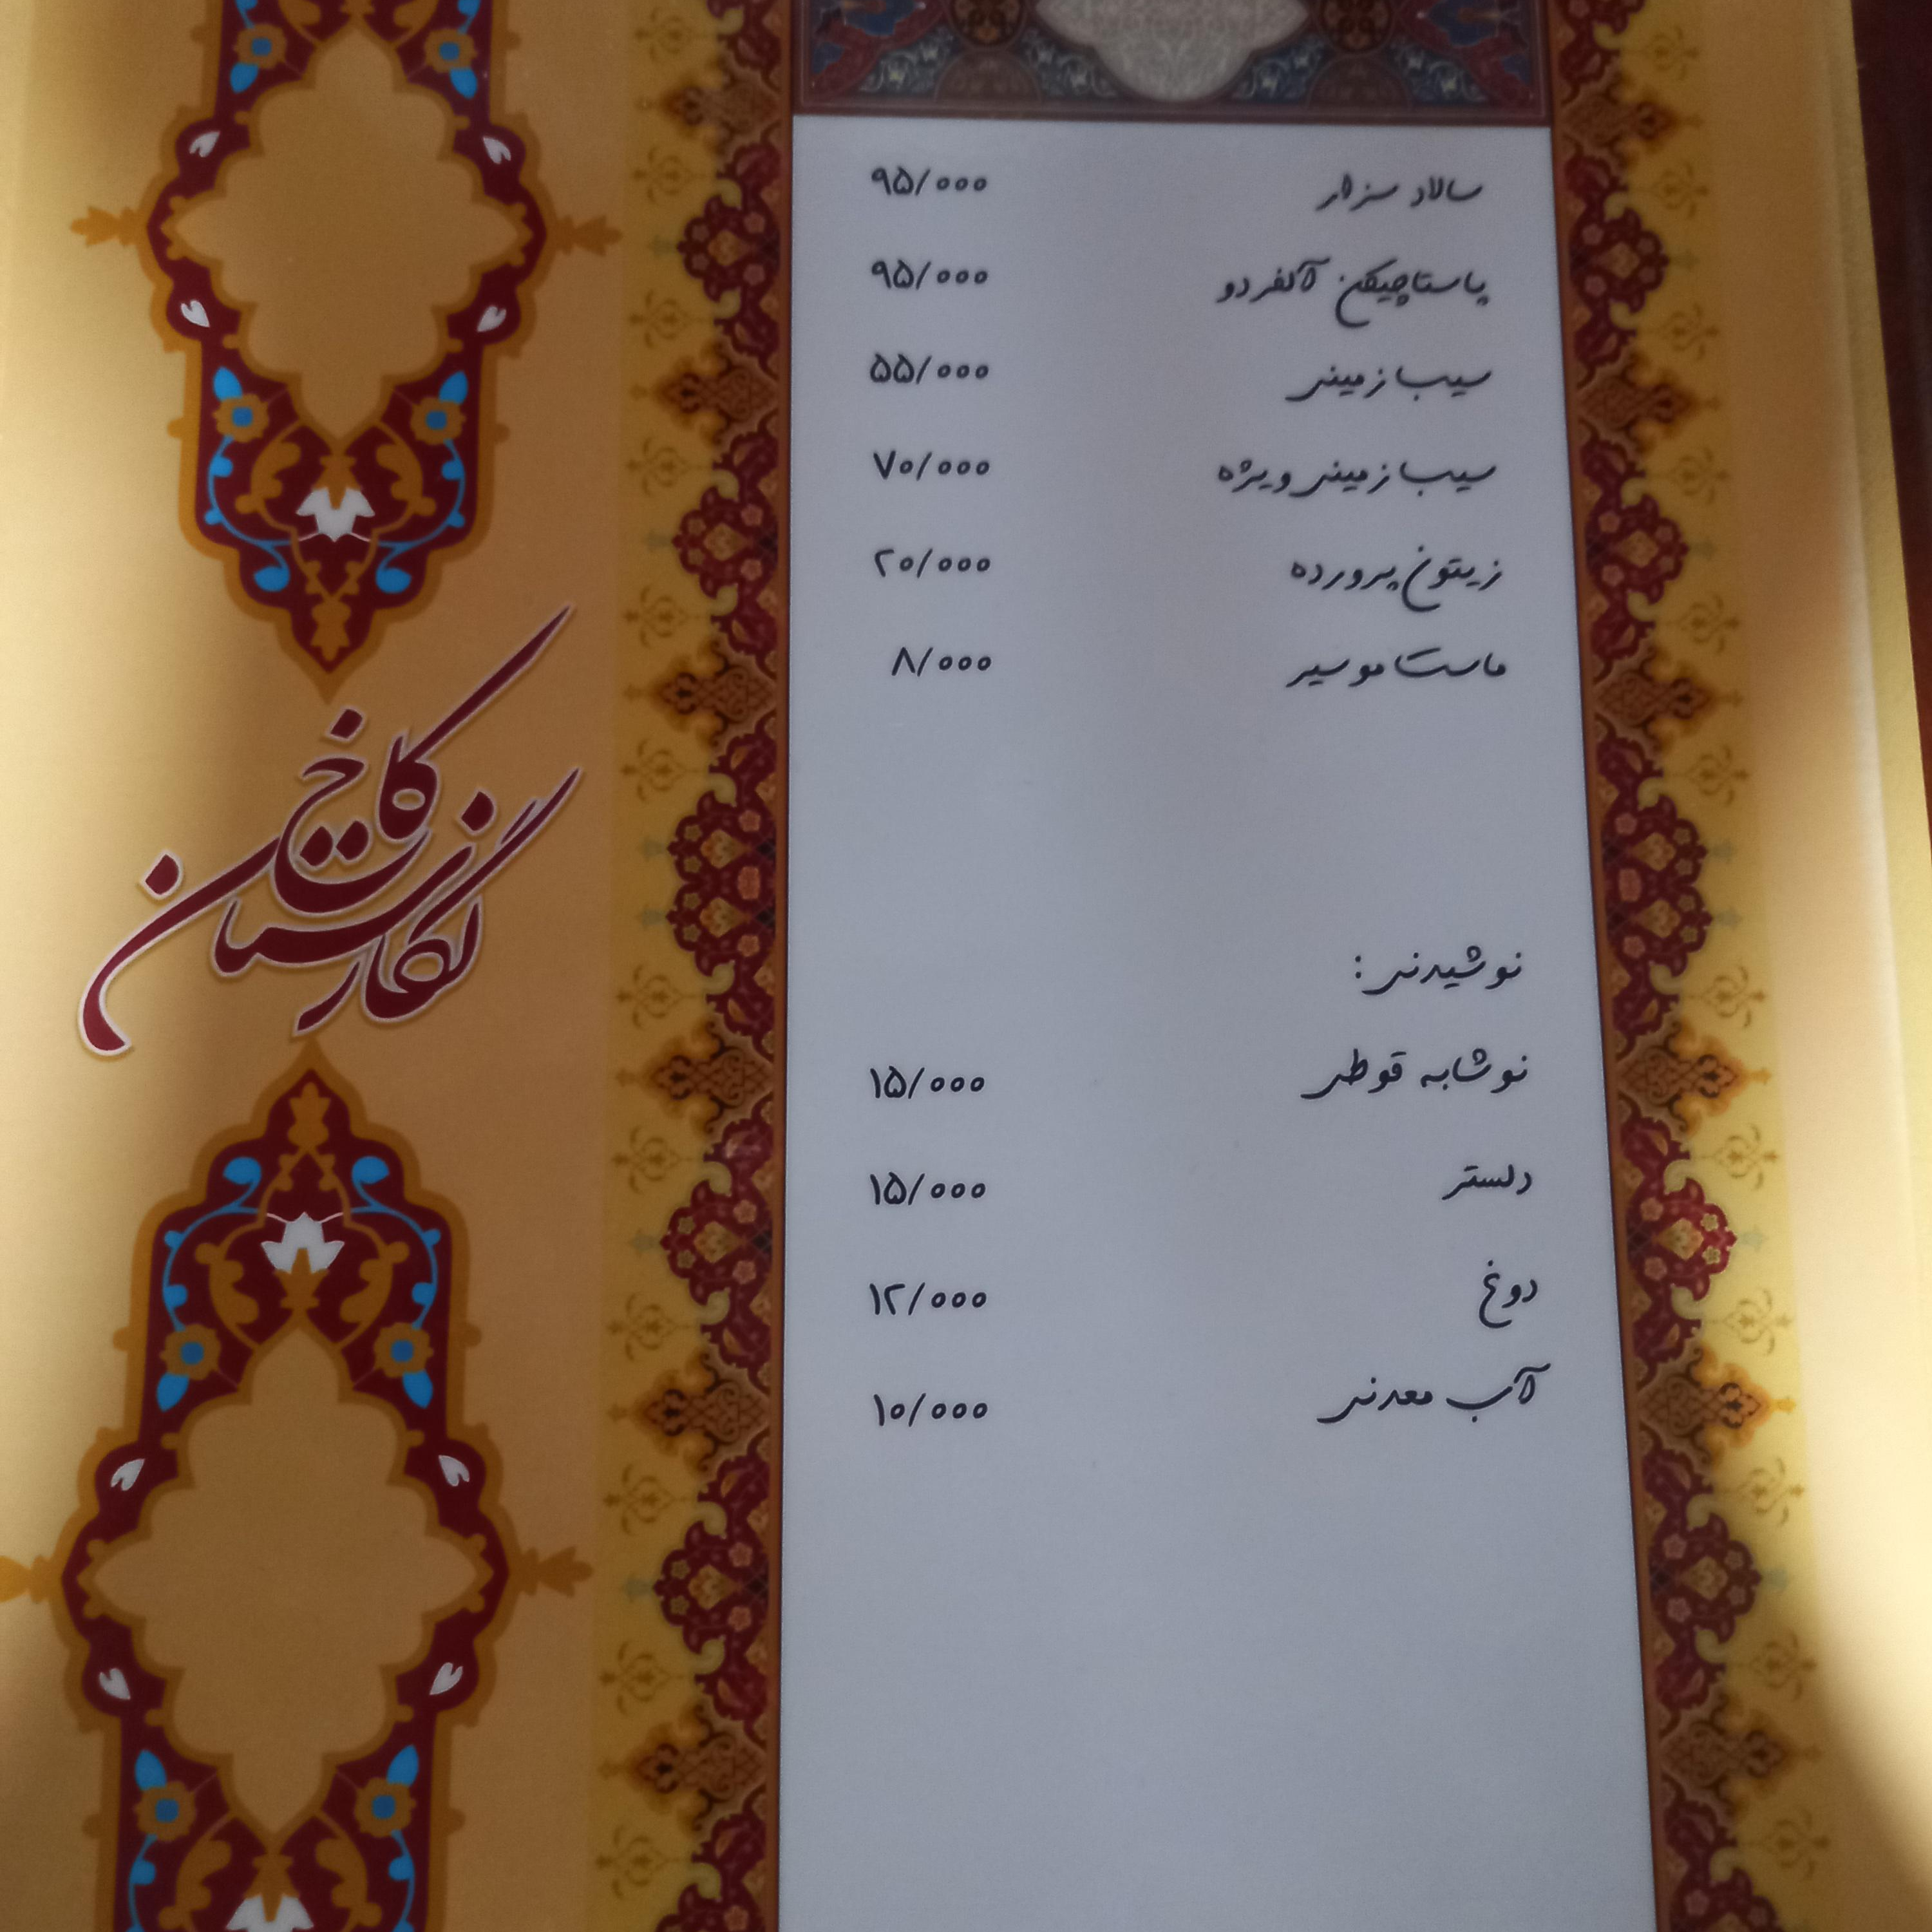 سالاد سزار ۹۵/۰۰۰
پاستا چیکن آلفردو ۹۵/۰۰۰
سیب زمینی ۵۵/۰۰۰
سیب زمینی ویژه ۷۰/۰۰۰
زیتون پرورده ۲۰/۰۰۰
ماست موسیر ۸/۰۰۰
نوشیدنی :
نوشابه قوطی ۱۵/۰۰۰
دلستر ۱۵/۰۰۰
دوغ ۱۲/۰۰۰
آب معدنی ۱۰/۰۰۰
کاخ
نگارستان